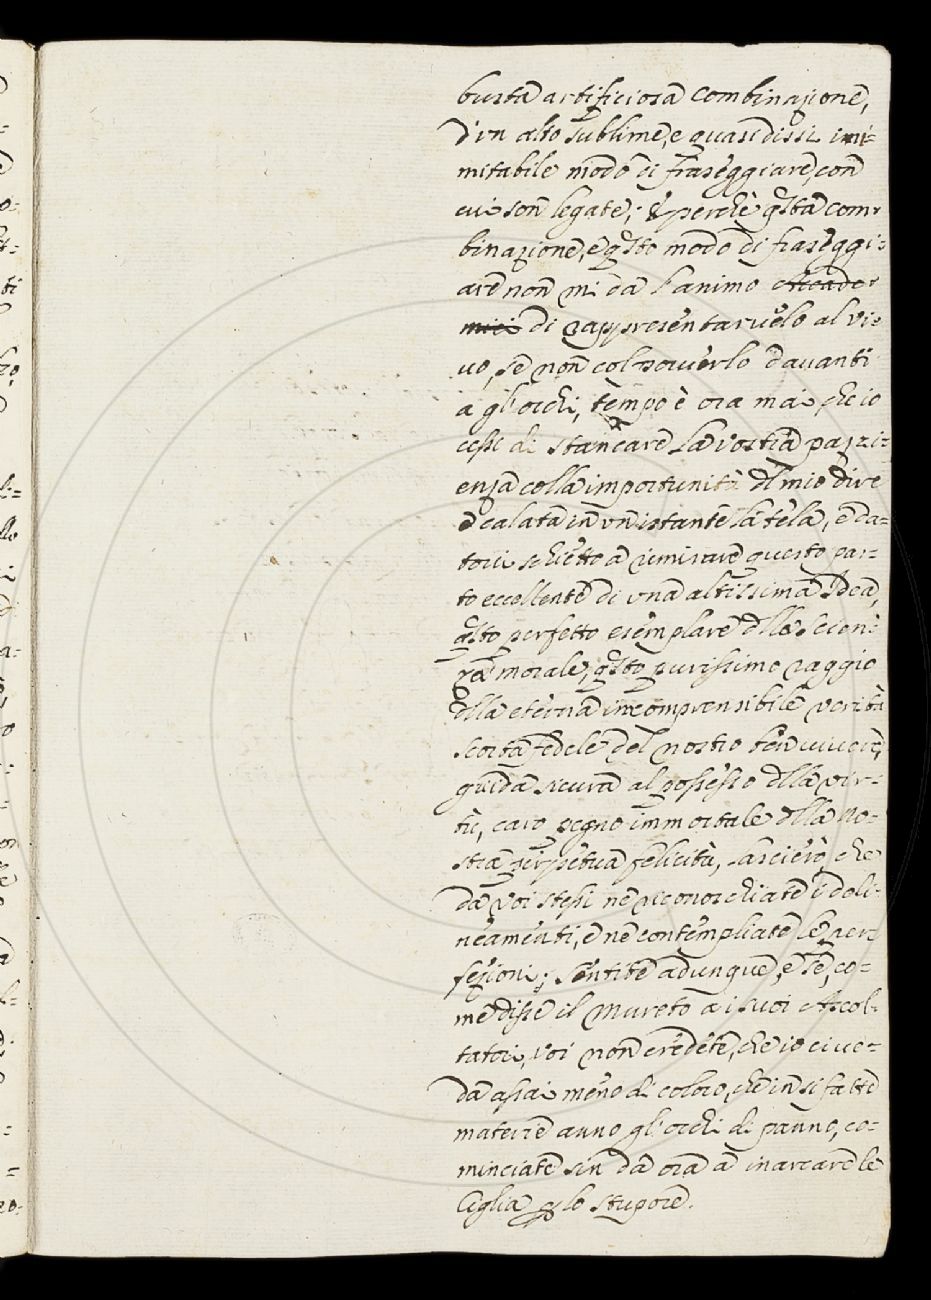 busta artificiosa combinazione,
d'un alto sublime, e quasi dissi ini-
mitabile modo di fraseggiare, con
cui son legate; E perche qsta com-
binazione, e qsto modo di fraseggi-
are non mi da l'animo Accade-
mici di rappresentarvelo al vi-
vo, se non col porverlo davanti
a gl'occhi, tempo è ora mai che io
cessi di stancare la vostra pazzi-
enza colla importunità dl mio dire
e calata in un istante la tela, e da-
tovi schietto a rimirare questo par-
to eccellente di una altissima Idea,
qsto perfetto esemplare dlla scien-
za morale, qsto purissimo raggio
dlla eterna incomprensibile verità
scorta fedele del nostro ben vivere,
guida sicura al possesso dlla vir-
tù, caro pegno immortale dlla no-
stra perpetua felicità, lascierò che
da voi stessi ne riconoschiate i deli-
neamenti, e ne contempliate le per-
fezioni; Sentite adunque, e se, co-
me disse il Mureto a i suoi Ascol-
tatori, voi non credete, che io ci ve-
da assai meno di coloro, che in si fatte
materie anno gl'occhi di panno, co-
minciate sin da ora a inarcare le
Ciglia p lo stupore.